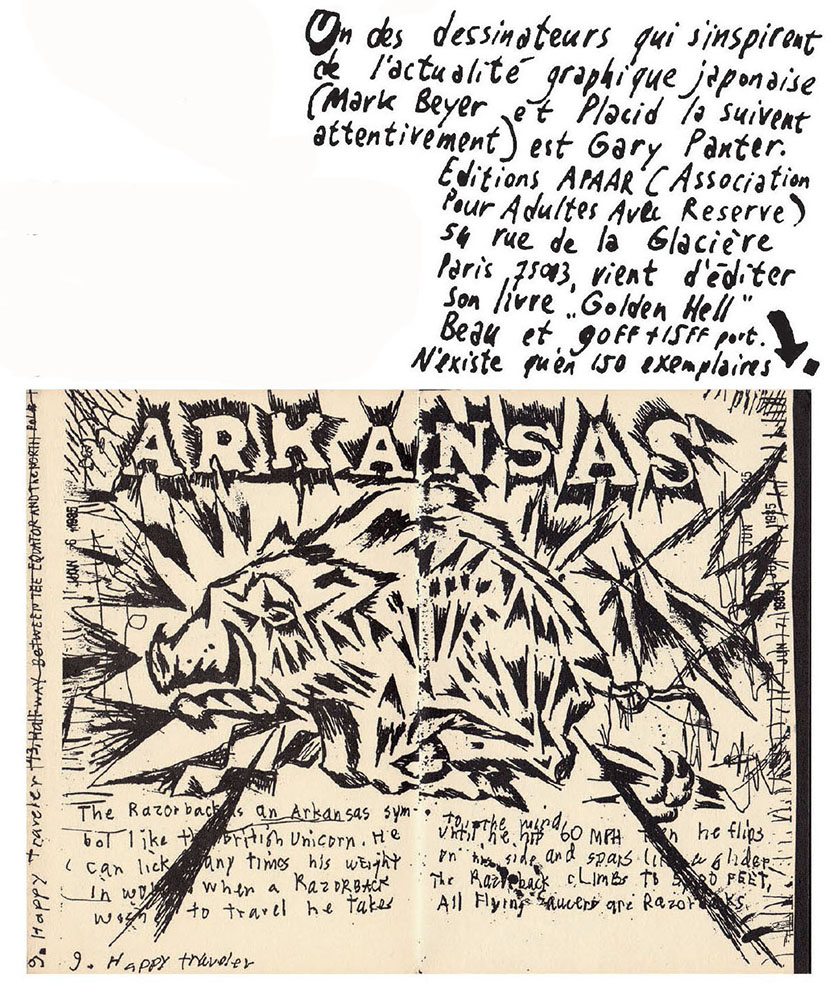 Un des dessinateurs qui s'inspirent
de l'actualité graphique japonaise
(Mark Beyer et Placid la suivent
attentivement) est Gary Panter.
Editions APAAR (Association
Pour Adultes Avec Reserve)
54 rue de la Glacière
Paris 75013, vient d'éditer
son livre „Golden Hell"
Beau et 90FF +15FF port.
N'existe qu'en 150 exemplaires
ARKANSAS
JUN 6 1985
JUN
1985
JUN 7 1985
9. Happy traveler
Halfway BETWEEN THE EQUATOR AND THE NORTH POLE
The Razorback is an Arkansas sym-
bol like the British Unicorn. He
can lick many times his weight
in when a RAZORBACK
to travel he takes
to the wind,
Until he hits 60 MPH then he flips
on his side and soars like a glider
The Razorback CLIMBS TO FEET,
All Flying Saucers are Razorbacks.
9. HAPPY traveler